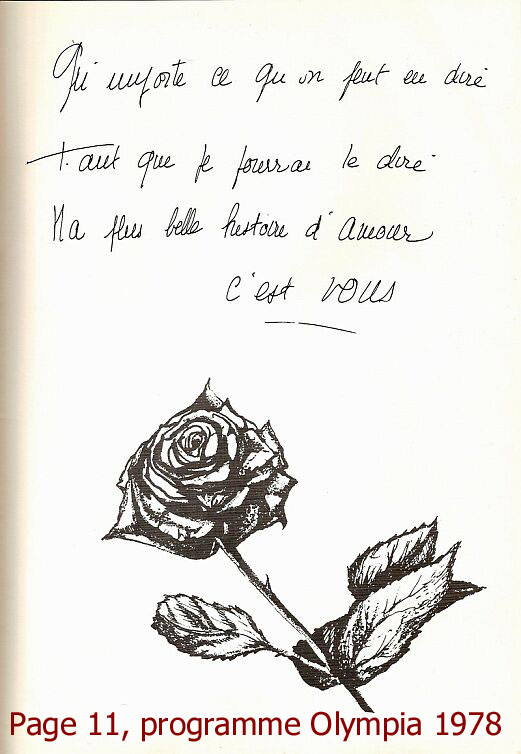 Qu'importe ce qu'on peut en dire
Tant que je pourrai le dire
Ma plus belle histoire d'amour
C'est VOUS
Page 11, programme Olympia 1978